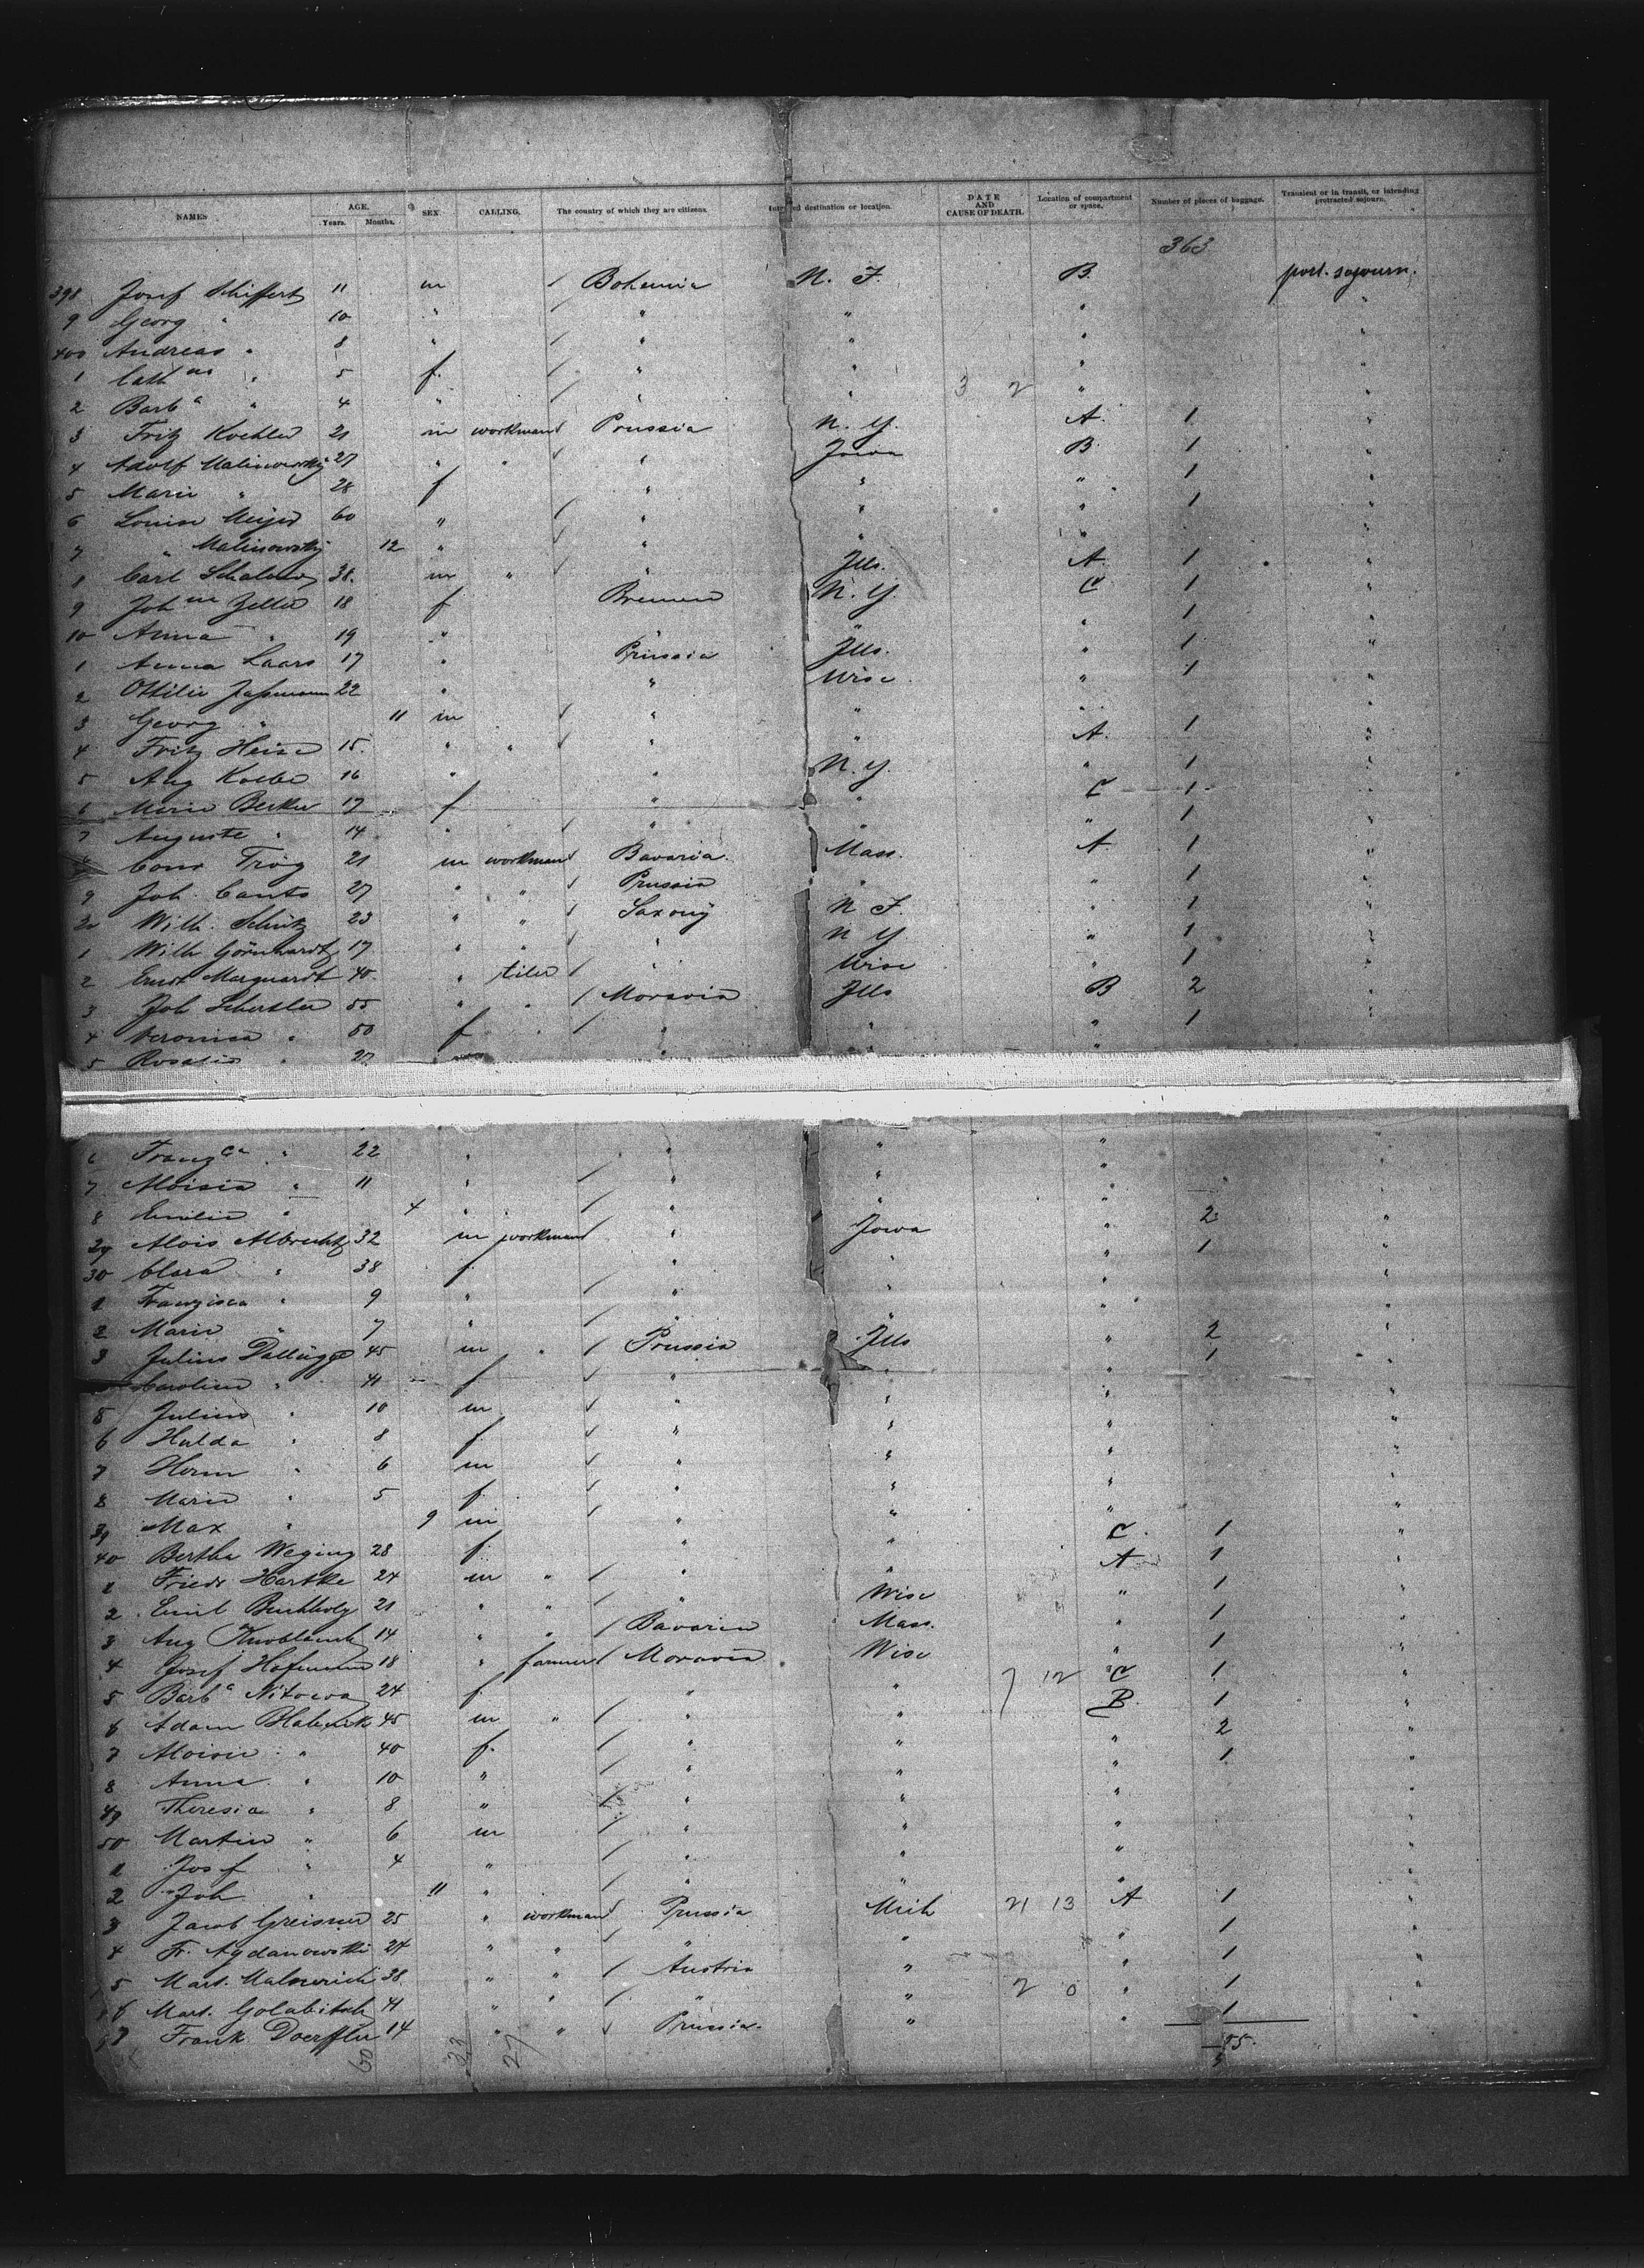 NAMES AGE. Years. Months. SEX. CALLING. The country of which they are citizens. Intended destination or location. DATE AND CAUSE OF DEATH. Location of compartment or space. Number of pieces of baggage. Transient or in transit, or intending protracted sojourn.
363
398 Josef Schiffert 11 m Bohemia N. J. B. port. sojourn.
9 Georg " 10 " " " " "
400 Andreas " 8 " " " " "
1 Cath na " 5 f. " " " "
2 Barb a " 4 " " " 3 2 " "
3 Fritz Koehler 21 m workman Prussia N. Y. A. 1 "
4 Adolf Malinowsky 27 " " " Iowa B. 1 "
5 Marie " 28 f " " " 1 "
6 Louise Meyer 60 " " " " 1 "
7 " Malinowsky 12 " " " " "
8 Carl 38. m " " Ills. A. 1 "
9 Joh ne Zeller 18 f Bremen N. Y. C 1 "
10 Anna " 19 " " " " 1 "
1 Anna Laars 17 " Prussia Ills. " 1 "
2 Ottilie 22 " " Wisc. " 1 "
3 Georg " 11 m " " " "
4 Fritz Heise 15. " " " " A. 1 "
5 Aug Kolbe 16 " " N. Y. " 1 "
6 Marie Becker 17 f " " C 1 "
7 Auguste " 14 " " " " 1 "
Conr Trög 21 m workman Bavaria. Mass. A 1 "
9 Joh. Cants 27 " " Prussia " " 1 "
20 Wilh. Schütz 23 " " Saxony N J. " 1 "
1 Wilh Görnhardt 17 " " " N Y " 1 "
2 Ernst Marquardt 40. " tiler " Wisc " 1 "
3 Joh 55 " " Moravia Ills B 2 "
4 Veronica " 50 f " " " " 1 "
5 Rosalie " 2 " " "
6 Franz ca " 22 " " " "
7 Aloisia " 11 " " " "
8 Emilie " 4 " " " "
29 Alois Albrecht 32 m workman " Iowa " 2 "
30 Clara " 38 f " " " 1 "
1 Franzisca " 9 " " " " "
2 Marie " 7 " " " " "
3 Julius Dallügge 45 m " Prussia Ills " 2 "
Caroline " 41 f " " " 1 "
5 Julius " 10 m " " " "
6 Hulda " 8 f " " " "
7 Herm " 6 m " " " "
8 Marie " 5 f. " " " "
39 Max " 9 m " " " "
40 Bertha Weging 28 f " " C. 1 "
1 Friedr Hartke 24 m " " " A 1 "
2 Emil Buchholz 21 " " " Wisc " 1 "
3 Aug Knoblauch 14 " " Bavaria Mass. " 1 "
4 Josef Hofmann 18 " farmer Moravia Wisc " 1 "
5 Barb a Nitowa 24 f " " 7 12 C 1 "
6 Adam 45 m " " " B. 1 "
7 Aloisie " 40 f. " " " 2 "
8 Anna " 10 " " " " 1 "
49 Theresia " 8 " " " " "
50 Martin " 6 m " " " "
1 Josef " 4 " " " " "
2 Joh " 11 " " " " "
3 Jacob Greisner 25 " workman Prussia Mich 21 13 A 1 "
4 Fr. Agdanowski 24 " " " " " 1 "
5 Mart. 38. " " Austria " " 1 "
6 Mart. Golabitsch 41 " " " " 2 0 " 1 "
7 Frank Doerfler 14 " " Prussia. " " 1
60 33 27 85.